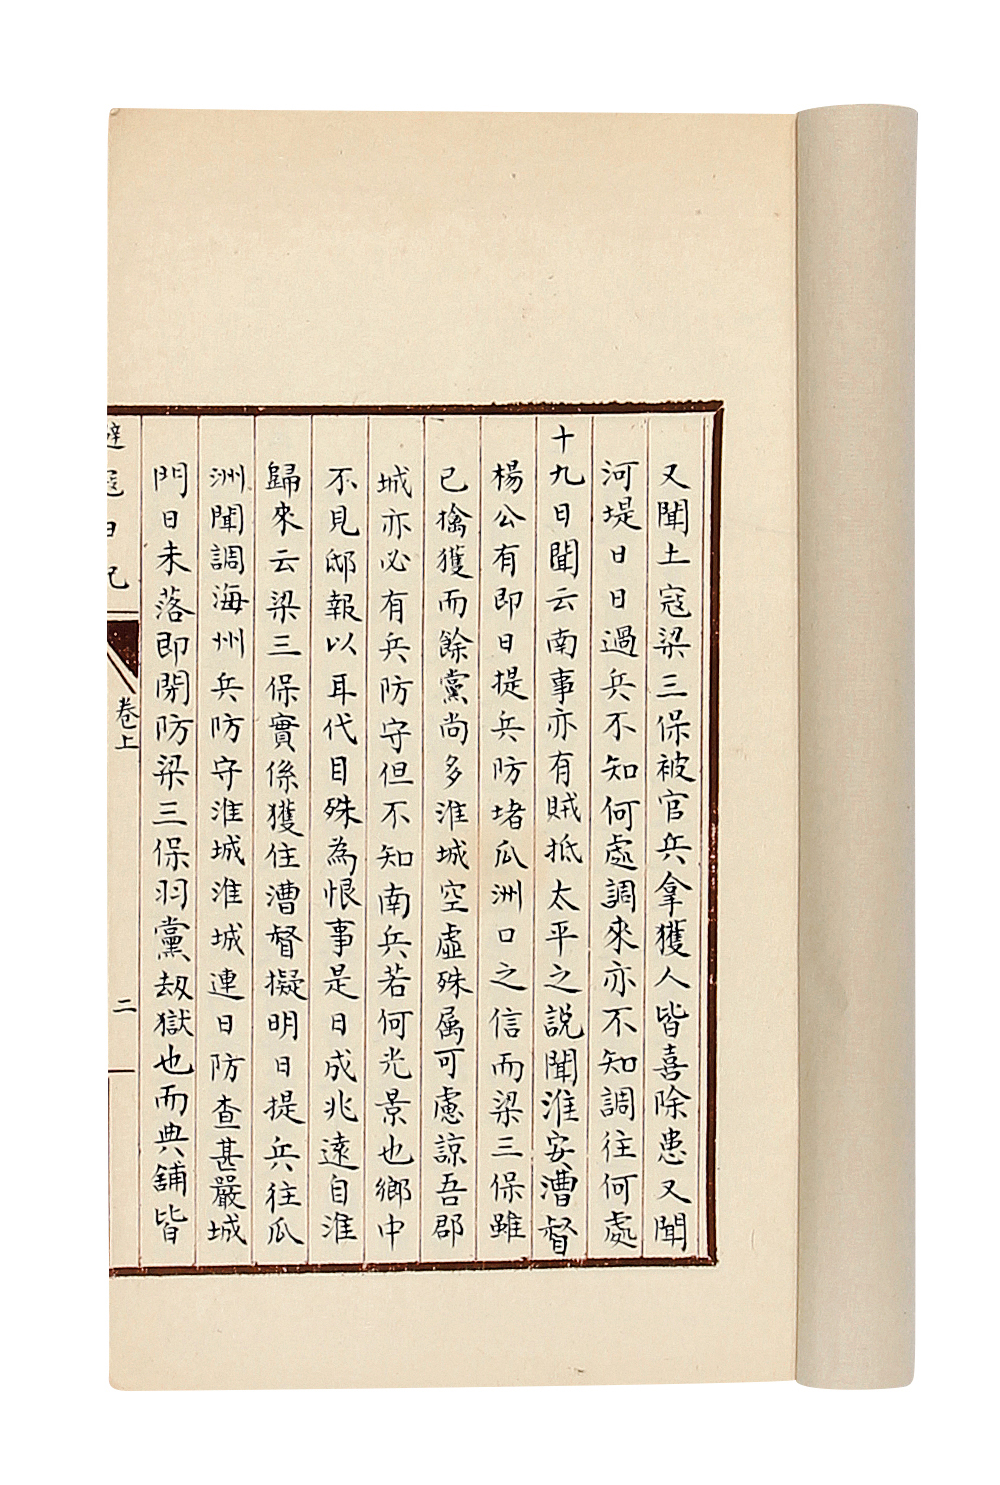 又聞土寇梁三保被官兵拿獲人皆喜除患又聞
河堤日日過兵不知何處調來亦不知調往何處
十九日聞云南事亦有賊抵太平之說聞淮安漕督
楊公有即日提兵防堵瓜洲口之信而梁三保雖
已擒獲而餘黨尚多淮城空虛殊屬可慮諒吾郡
城亦必有兵防守但不知南兵若何光景也鄉中
不見邸報以耳代目殊為恨事是日成兆遠自淮
歸來云梁三保實係獲住漕督擬明日提兵往瓜
洲聞調海州兵防守淮城淮城連日防查甚嚴城
門日未落即閉防梁三保羽黨劫獄也而典舖皆
避寇日記
卷上
二